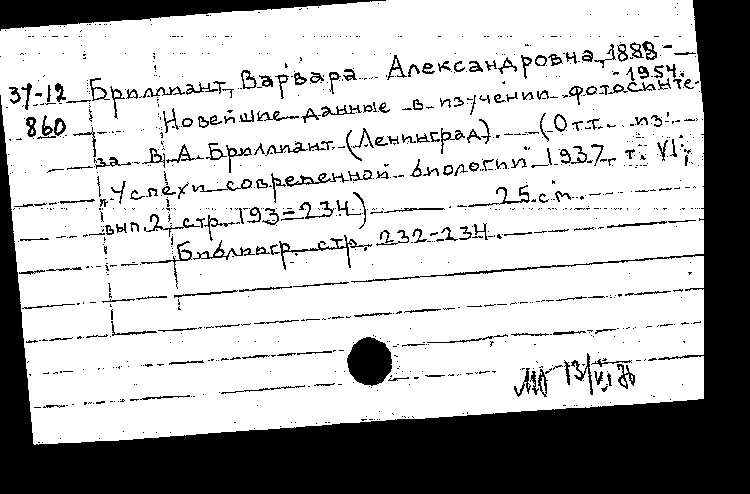 37-12 Бриллиант, Варвара Александровна, 1888-
1954.
860 Новейшие данные в изучении фотосинте-
за В. А. Бриллиант (Ленинград). (Отт. из:
"Успехи современной биологии 1937, т. VI;
вып. 2 стр. 193-234) 25 cm.
Библиогр. стр. 232-234.
13/VI